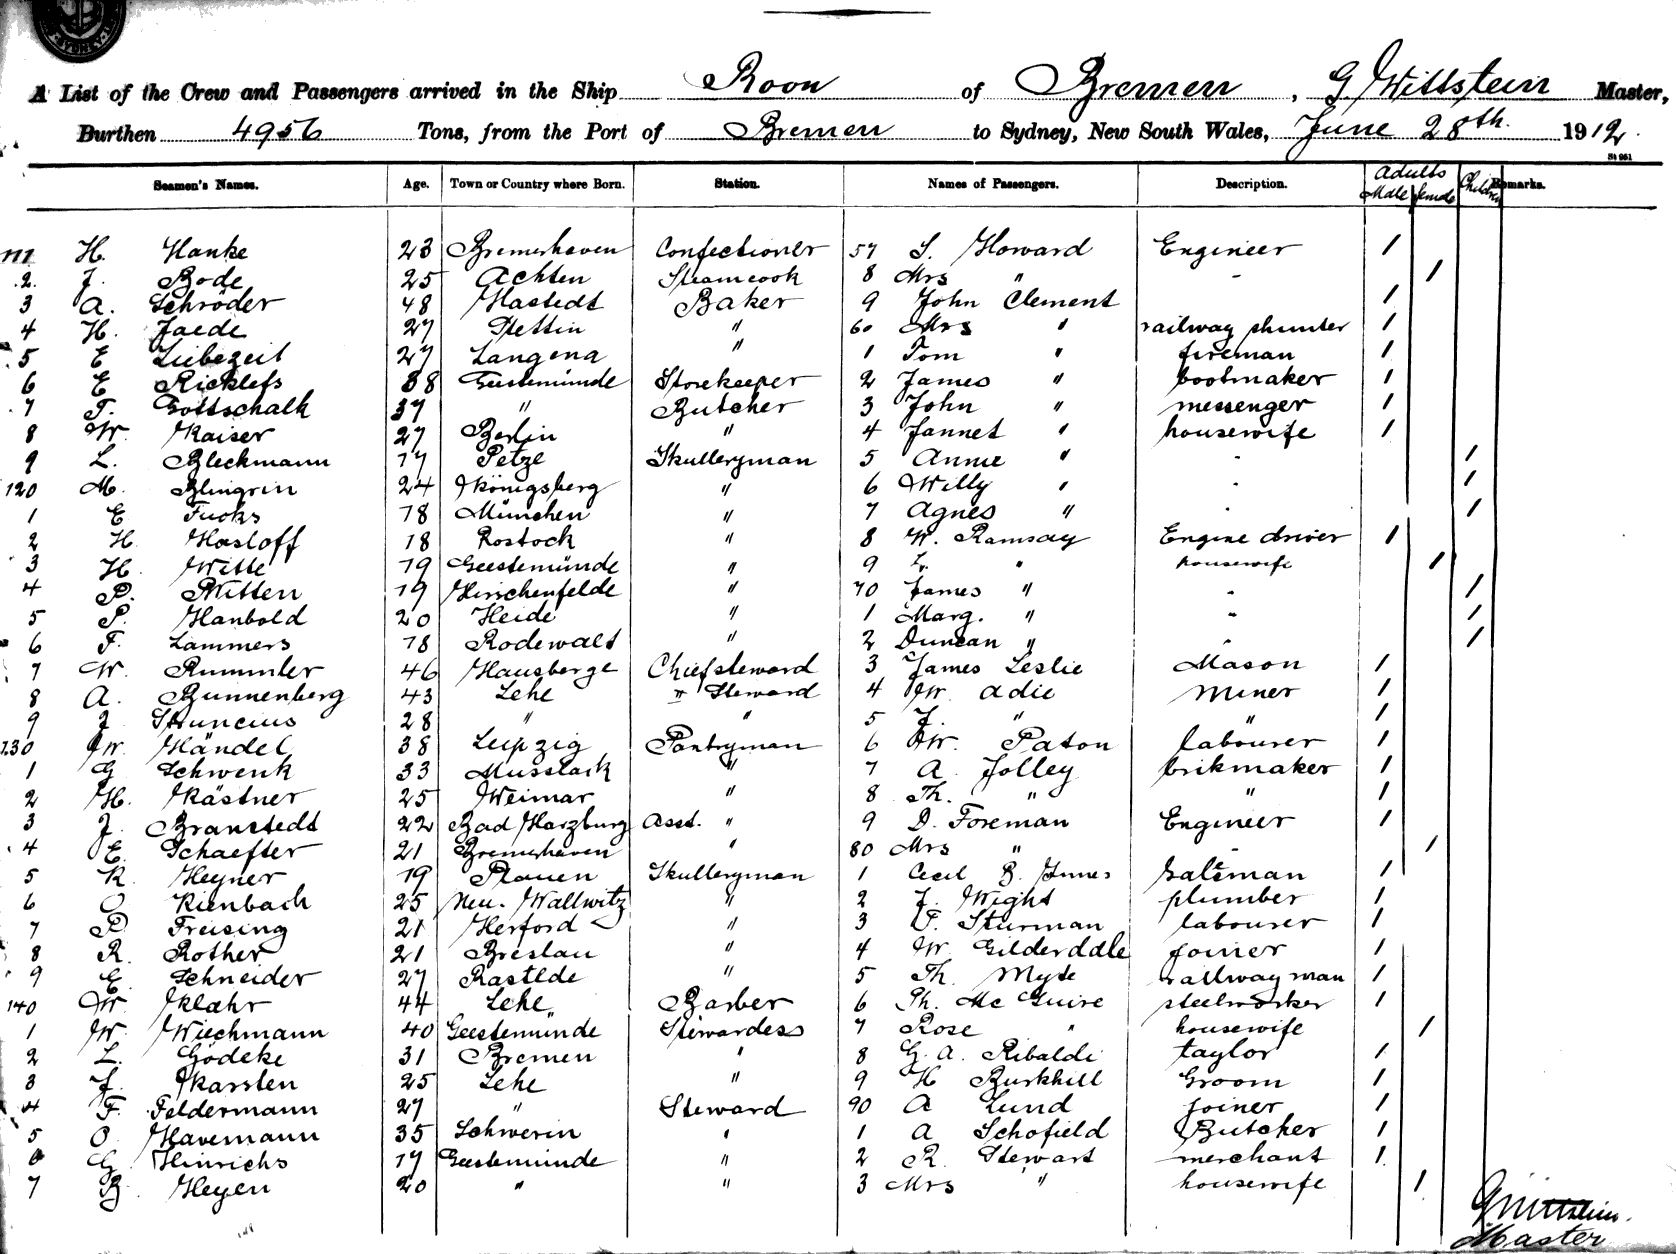 SYDNEY
A List of the Crew and Passengers arrived in the Ship Roon of Bremen, G. Wittstein Master,
Burthen 4956 Tons, from the Port of Bremen to Sydney, New South Wales, June 28th. 1912.
St 951
Seamen's Names. Age. Town or Country where Born. Station. Names of Passengers. Description. Adults Male female Children Remarks.
H. Hanke 23 Bremerhaven Confectioner 57 S. Howard Engineer /
2. J. Bode 25 Achten Steamcook 8 Mrs " - /
3 A. Schröder 48 Hastedt Baker 9 John Clement /
4 H. Jaede 27 Stettin " 60 Mrs " railway shunter /
5 E Liebezeit 27 Langena " 1 Tom " fireman /
6 E Ricklefs 38 Geestemünde Storekeeper 2 James " bootmaker /
7 T. Gottschalk 37 " Butcher 3 John " messenger /
8 W. Kaiser 27 Berlin " 4 Jannet " housewife /
9 L. Bleckmann 17 Petze Skulleryman 5 Annie " - /
120 M. Blingrin 24 Königsberg " 6 Willy " - /
1 E Fucks 18 München " 7 Agnes " - /
2 H Hasloff 18 Rostock " 8 W. Ramsay Engine driver /
3 H. Witte 19 Geestemünde " 9 L. " housewife /
4 P. Witten 19 Hirschenfelde " 70 James " - /
5 P. Hanbold 20 Heide " 1 Marg. " - /
6 F. Lammers 18 Rodewalt " 2 Duncan " - /
7 W. Rummler 46 Hausberge Chiefsteward 3 James Leslie Mason /
8 A. Bunnenberg 43 Lehe II Steward 4 W. Adie Miner /
9 J. Struncius 28 " " 5 J. " " /
130 W. Händel 38 Leipzig Pantryman 6 W. Paton labourer /
1 G Schwenk 33 " 7 A. Jolley brikmaker /
2 H. Kästner 25 Weimar " 8 Th. " " /
3 J. Branstedt 22 Bad Harzburg Asst. " 9 D. Foreman Engineer /
4 E. Schaefter 21 Bremerhaven " 80 Mrs " - /
5 R. Heyner 19 Plauen Skulleryman 1 Cecil B. Innes Salesman /
6 O Rienbach 25 Neu-Wallwitz " 2 J. Wight plumber /
7 P Freising 21 Herford " 3 P. Sturman labourer /
8 R. Rother 21 Breslau " 4 W. Gilderddale joiner /
9 E. Schneider 27 Rastede " 5 Th. Myte railway man /
140 W. Klahr 44 Lehe Barber 6 Th. Mc Guire steelworker /
1 W. Wiechmann 40 Geestemünde Stewardess 7 Rose " housewife /
2 L. Gödeke 31 Bremen " 8 G. A. Ribaldi taylor /
3 J. Karsten 25 Lehe " 9 H Burkhill Groom /
4 F. Feldermann 27 " Steward 90 A Lund joiner /
5 O. Havemann 35 Schwerin " 1 A Schofield Butcher /
6 G. Hinrichs 19 Geestemünde " 2 R. Stewart merchant /
7 B. Heyen 20 " " 3 Mrs " housewife /
G Wittstein.
Master